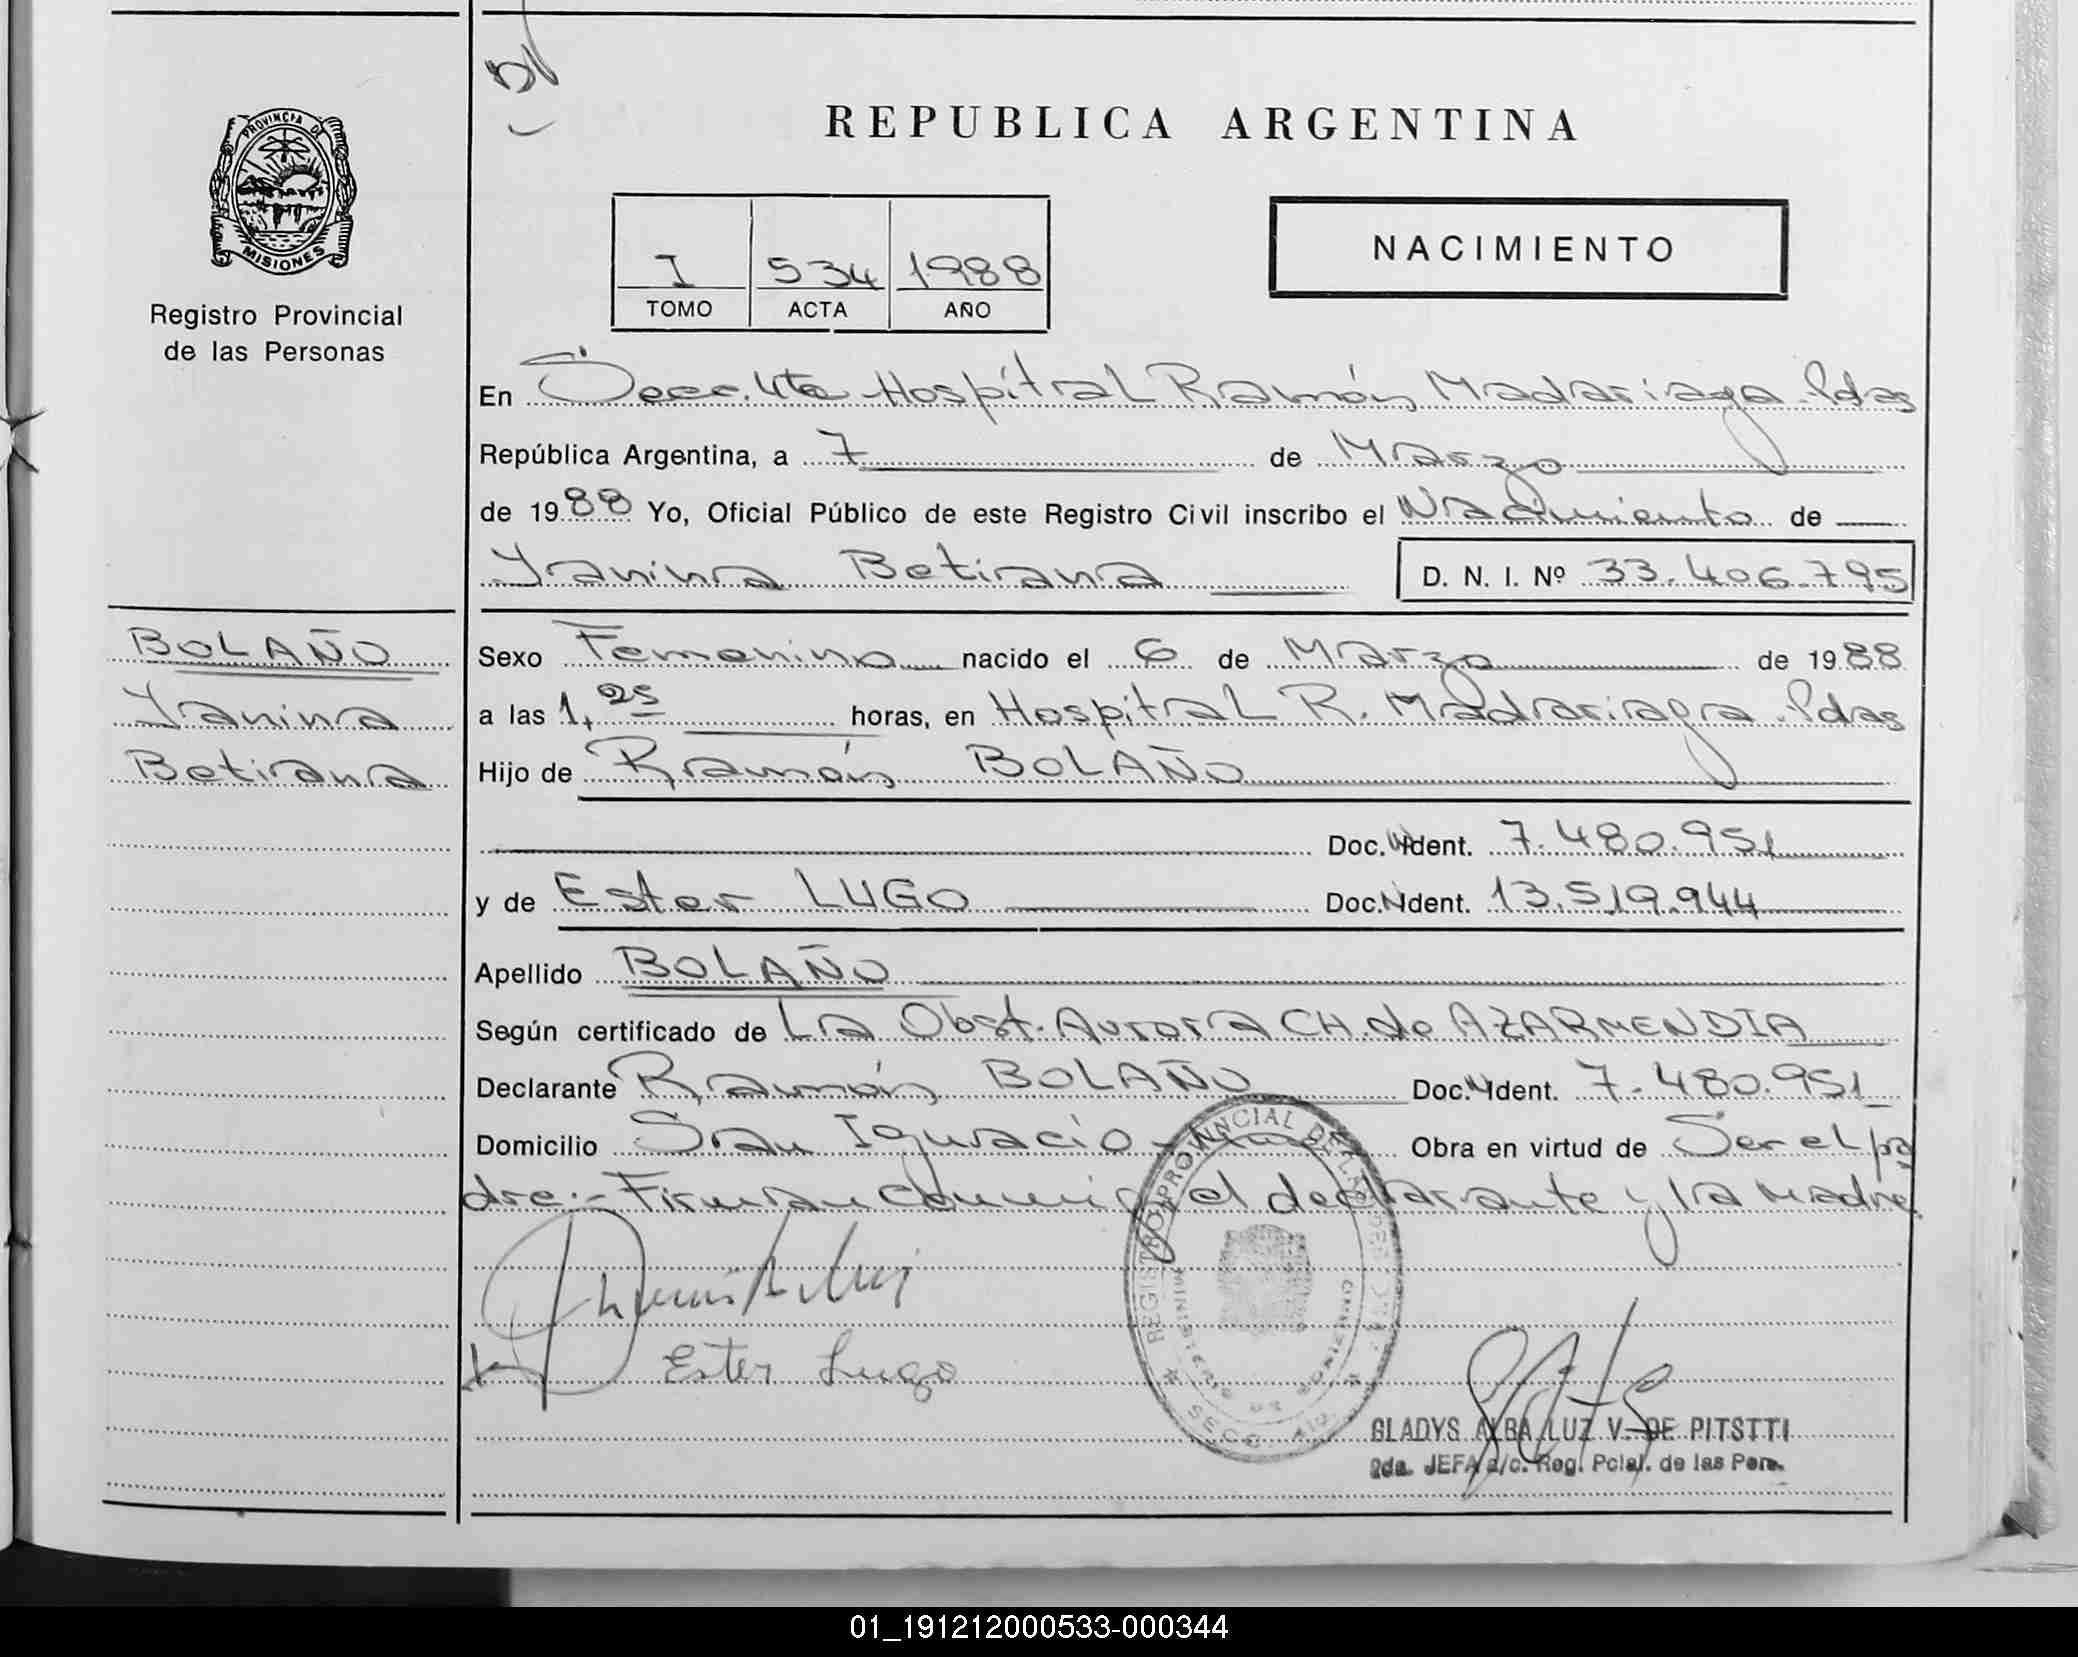 REPUBLICA ARGENTINA
PROVINCIA DE
MISIONES
Registro Provincial
de las Personas
NACIMIENTO
I 534 1988
TOMO ACTA AÑO
En Secc. 4ta Hospital Ramón Madariaga. Pdas
República Argentina, a 7 de Marzo
de 1988 Yo, Oficial Público de este Registro Civil inscribo el Nacimiento de
Yanina Betiana D. N. I. Nº 33.406.795
BOLAÑO
Yanina
Betiana
Sexo Femenino nacido el 6 de Marzo de 1988
a las 1,25 horas, en Hospital R. Madariaga. Pdas
Hijo de Ramón BOLAÑO
Doc. Ident. 7.480.951
y de Ester LUGO Doc. Ident. 13.519.944
Apellido BOLAÑO
Según certificado de La Obst. Aurora CH. de AZARMENDIA
Declarante Ramón BOLAÑO Doc. Ident. 7.480.951
Domicilio San Ignacio - Obra en virtud de Ser el pa
dre.- Firman conmigo el declarante y la Madre
Ester Lugo
REGISTRO PROVINCIAL DE LAS PERSONAS
SECC.
GLADYS ALBA LUZ V. DE PITSTTI
2da. JEFA a/c. Reg. Pcial. de las Pers.
01_191212000533-000344